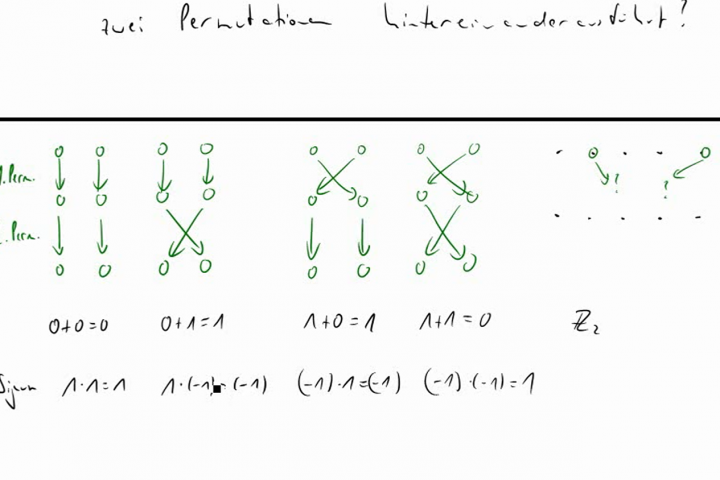 zwei Permutationen hintereinanderausführt?
1. Perm.
. Perm.
0+0=0 0+1=1 1+0=1 1+1=0 ℤ₂
Signum 1·1=1 1·(-1)=(-1) (-1)·1=(-1) (-1)·(-1)=1